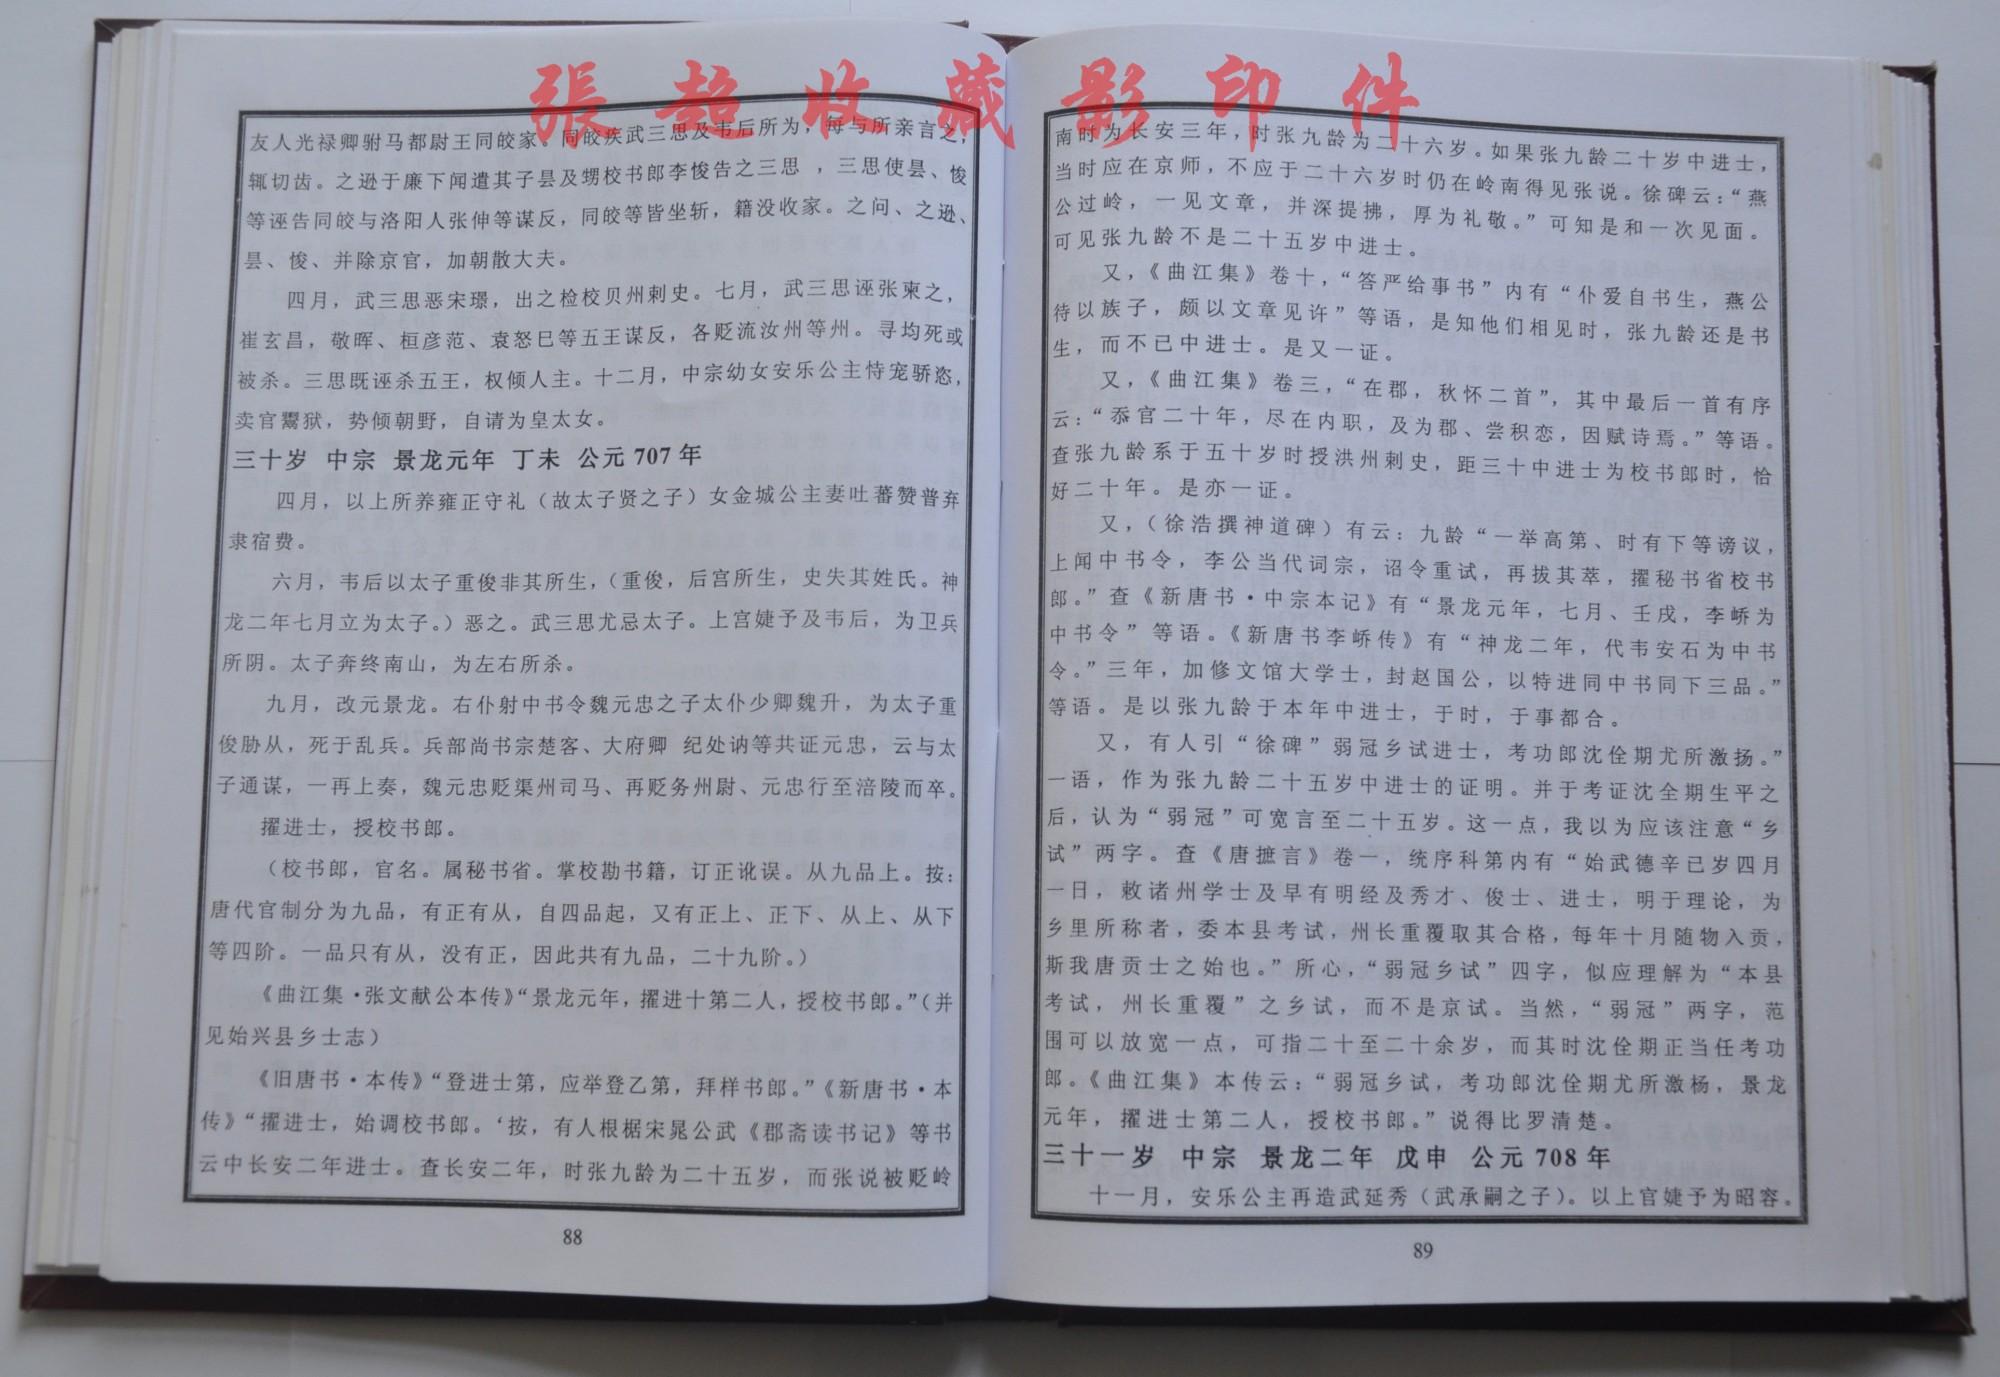 張超收藏影印件
友人光禄卿驸马都尉王同皎家。同皎疾武三思及韦后所为，每与所亲言之，
辄切齿。之逊于廉下闻遣其子昙及甥校书郎李悛告之三思 ，三思使昙、悛
等诬告同皎与洛阳人张伸等谋反，同皎等皆坐斩，籍没收家。之问、之逊、
昙、悛、并除京官，加朝散大夫。
四月，武三思恶宋璟，出之检校贝州刺史。七月，武三思诬张柬之，
崔玄昌，敬晖、桓彦范、袁怒巳等五王谋反，各贬流汝州等州。寻均死或
被杀。三思既诬杀五王，权倾人主。十二月，中宗幼女安乐公主恃宠骄恣，
卖官鬻狱，势倾朝野，自请为皇太女。
三十岁 中宗 景龙元年 丁未 公元 707 年
四月，以上所养雍正守礼（故太子贤之子）女金城公主妻吐蕃赞普弃
隶宿费。
六月，韦后以太子重俊非其所生，（重俊，后宫所生，史失其姓氏。神
龙二年七月立为太子。）恶之。武三思尤忌太子。上宫婕予及韦后，为卫兵
所阴。太子奔终南山，为左右所杀。
九月，改元景龙。右仆射中书令魏元忠之子太仆少卿魏升，为太子重
俊胁从，死于乱兵。兵部尚书宗楚客、大府卿 纪处讷等共证元忠，云与太
子通谋，一再上奏，魏元忠贬渠州司马、再贬务州尉、元忠行至涪陵而卒。
擢进士，授校书郎。
（校书郎，官名。属秘书省。掌校勘书籍，订正讹误。从九品上。按：
唐代官制分为九品，有正有从，自四品起，又有正上、正下、从上、从下
等四阶。一品只有从，没有正，因此共有九品，二十九阶。）
《曲江集·张文献公本传》“景龙元年，擢进十第二人，授校书郎。”（并
见始兴县乡士志）
《旧唐书·本传》“登进士第，应举登乙第，拜样书郎。”《新唐书·本
传》“擢进士，始调校书郎。‘按，有人根椐宋晁公武《郡斋读书记》等书
云中长安二年进士。查长安二年，时张九龄为二十五岁，而张说被贬岭
88
南时为长安三年，时张九龄为二十六岁。如果张九龄二十岁中进士，
当时应在京师，不应于二十六岁时仍在岭南得见张说。徐碑云：“燕
公过岭，一见文章，并深提拂，厚为礼敬。”可知是和一次见面。
可见张九龄不是二十五岁中进士。
又，《曲江集》卷十，“答严给事书”内有“仆爱自书生，燕公
待以族子，颇以文章见许”等语，是知他们相见时，张九龄还是书
生，而不已中进士。是又一证。
又，《曲江集》卷三，“在郡，秋怀二首”，其中最后一首有序
云：“忝官二十年，尽在内职，及为郡、尝积恋，因赋诗焉。”等语。
查张九龄系于五十岁时授洪州刺史，距三十中进士为校书郎时，恰
好二十年。是亦一证。
又，（徐浩撰神道碑）有云：九龄“一举高第、时有下等谤议，
上闻中书令，李公当代词宗，诏令重试，再拔其萃，擢秘书省校书
郎。”查《新唐书·中宗本记》有“景龙元年，七月、壬戌，李峤为
中书令”等语。《新唐书李峤传》有“神龙二年，代韦安石为中书
令。”三年，加修文馆大学士，封赵国公，以特进同中书同下三品。”
等语。是以张九龄于本年中进士，于时，于事都合。
又，有人引“徐碑”弱冠乡试进士，考功郎沈佺期尤所激扬。”
一语，作为张九龄二十五岁中进士的证明。并于考证沈全期生平之
后，认为“弱冠”可宽言至二十五岁。这一点，我以为应该注意“乡
试”两字。查《唐摭言》卷一，统序科第内有“始武德辛已岁四月
一日，敕诸州学士及早有明经及秀才、俊士、进士，明于理论，为
乡里所称者，委本县考试，州长重覆取其合格，每年十月随物入贡，
斯我唐贡士之始也。”所心，“弱冠乡试”四字，似应理解为“本县
考试，州长重覆”之乡试，而不是京试。当然，“弱冠”两字，范
围可以放宽一点，可指二十至二十余岁，而其时沈佺期正当任考功
郎。《曲江集》本传云：“弱冠乡试，考功郎沈佺期尤所激杨，景龙
元年，擢进士第二人，授校书郎。”说得比罗清楚。
三十一岁 中宗 景龙二年 戊申 公元 708 年
十一月，安乐公主再造武延秀（武承嗣之子）。以上官婕予为昭容。
89